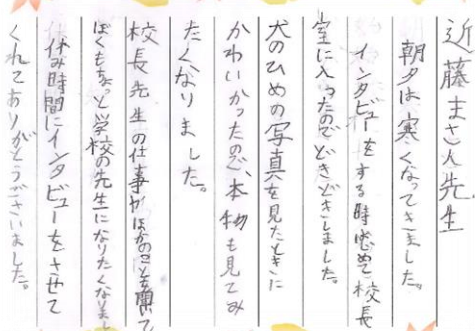 近藤まさ人先生
朝夕は寒くなってきました。
インタビューをする時初めて校長
室に入ったのでどきどきしました。
犬のひめの写真を見たときに
かわいかったので、本物も見てみ
たくなりました。
校長先生の仕事やほかのことも聞いて
ぼくもちょっと学校の先生になりたくなりまし
休み時間にインタビューをさせて
くれてありがとうございました。